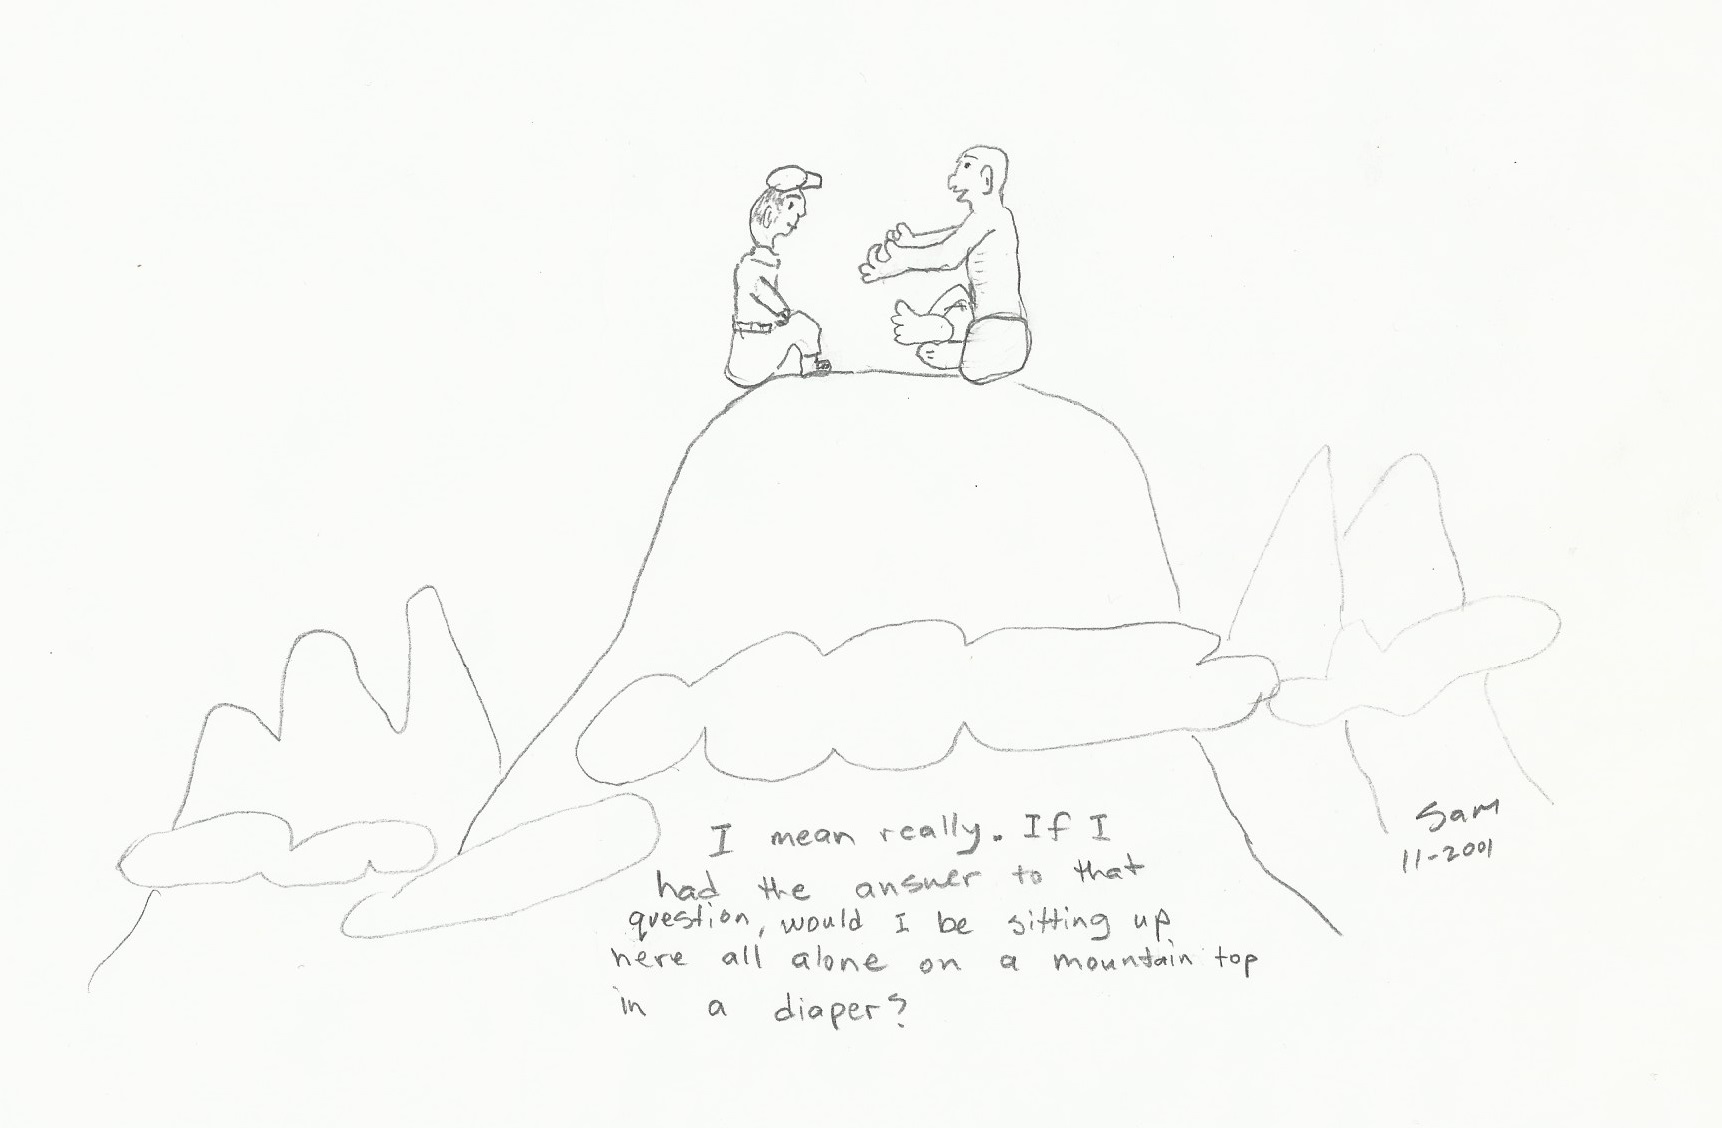 I mean really. If I
had the answer to that
question, would I be sitting up
here all alone on a mountain top
in a diaper?
Sam
11-2001